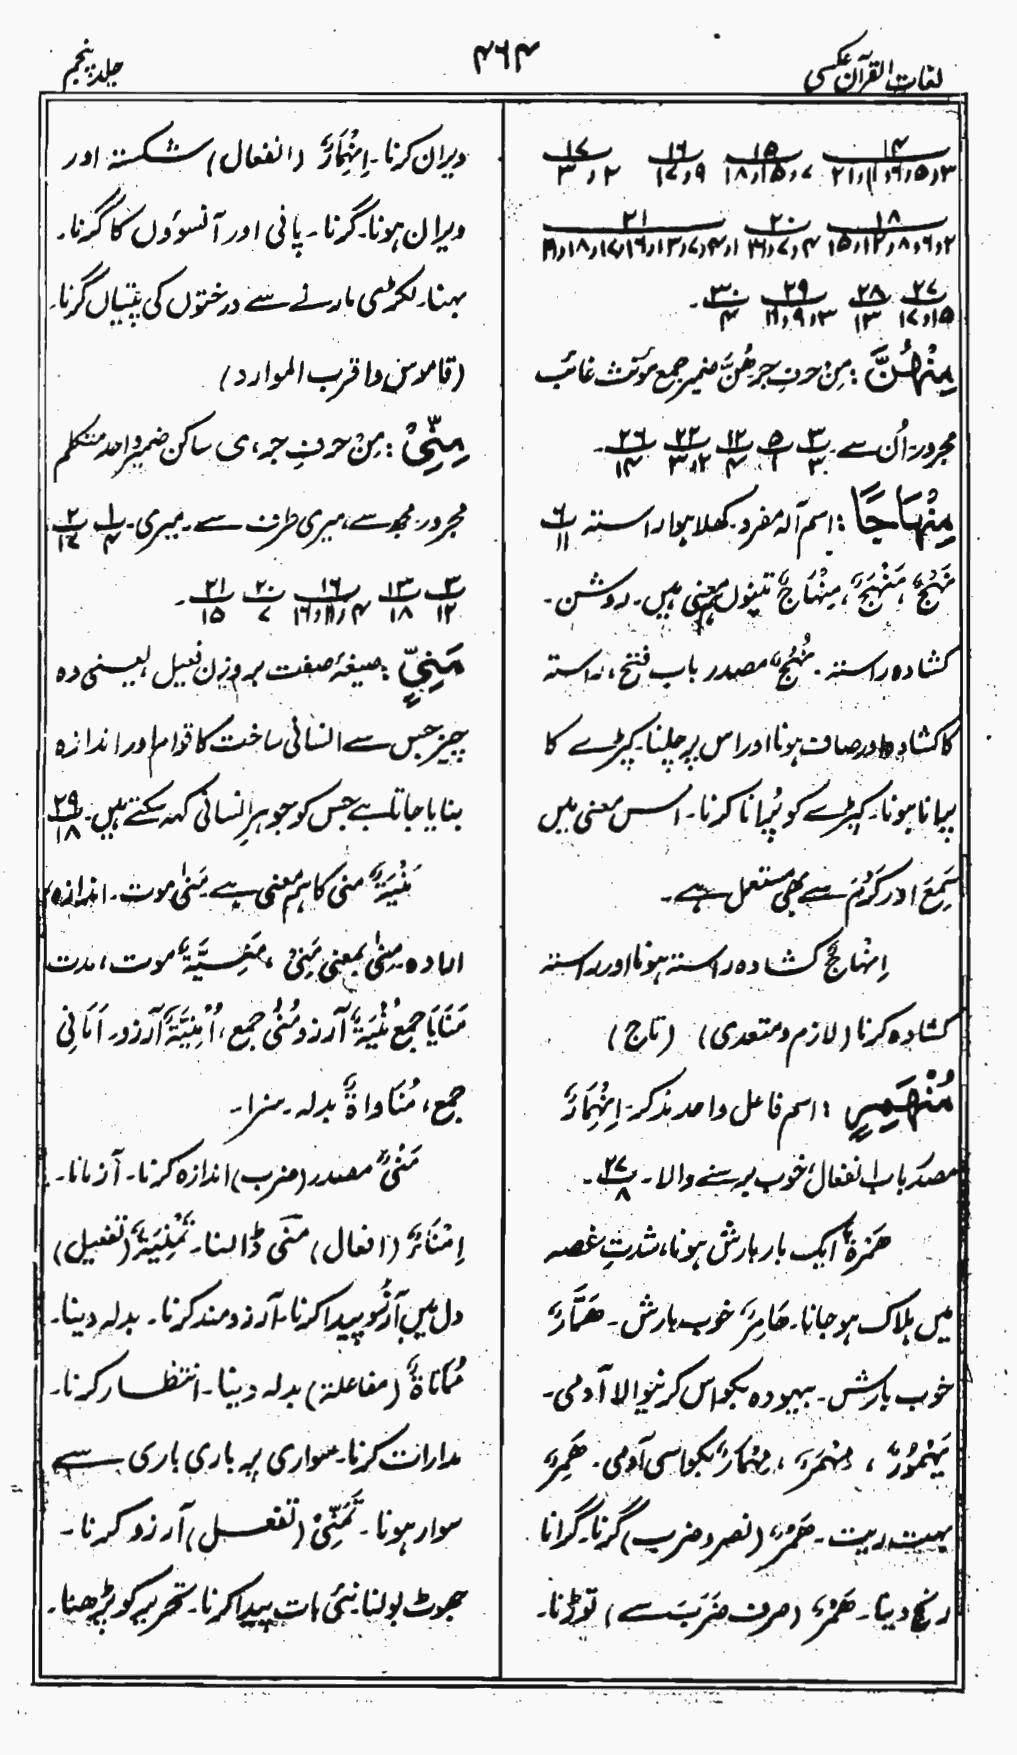 لغات القرآن عکسی
۴۶۴
جلد پنجم
۱۴ ۱۵ ۱۶ ۱۷
۳،۵،۶،۱۱،۲۱ ۷،۱۵،۱۸ ۹،۱۷ ۲،۳
۱۸ ۲۰ ۲۱
۲،۶،۸،۱۲،۱۵ ۴،۷،۳۶
۲۷ ۲۸ ۲۹ ۳۰
۱۵،۱۷ ۱۳ ۳،۹،۱۱ ۴ ۔
مِنْهُنَّ : مِنْ حرفِ جر هُنَّ ضمیر جمع مؤنث غائب
مجرور۔ اُن سے ۔ ۳/۳ ۵/۱ ۱۲/۴ ۲۲/۲،۳ ۲۶/۱۴ ۔
مِنْهَاجًا : اسم آلہ مفرد۔ کھلا ہوا راستہ ۶/۱۱
نَهْجٌ، مَنْهَجٌ، مِنْهَاجٌ تینوں ہم معنی ہیں۔ روشن۔
کشادہ راستہ ۔ نُهُجٌ مصدر باب فتح، راستہ
کا کشادہ اور صاف ہونا اور اس پر چلنا۔ کپڑے کا
پرانا ہونا۔ کپڑے کو پُرانا کرنا۔ اس معنی میں
سَمِعَ اور کَرُمَ سے بھی مستعمل ہے۔
اِنْهَاجٌ کشادہ راستہ ہونا اور راستہ
کشادہ کرنا (لازم و متعدی) (تاج)
مُنْهَمِرٍ : اسم فاعل واحد مذکر۔ اِنْهِمَارٌ
مصدر باب انفعال خوب برسنے والا ۔ ۲۷/۸ ۔
هَمْرَةٌ ایک بار بارش ہونا، شدتِ غصہ
میں ہلاک ہو جانا۔ هَامِرٌ خوب بارش۔ هَمَّارٌ
خوب بارش۔ بیہودہ بکواس کرنیوالا آدمی۔
یَهْمُوْرٌ ، مِهْمَرٌ ، مِهْمَارٌ بکواسی آدمی۔ هَمِرٌ
بہت ریت ۔ هَمْرٌ (نصر و ضرب) گرنا۔ گرانا
رنج دینا۔ هَمْرٌ (صرف ضَرَبَ سے) توڑنا۔
ویران کرنا۔ اِنْهِمَارٌ (انفعال) شکستہ اور
ویران ہونا۔ گرنا۔ پانی اور آنسوؤں کا گرنا۔
بہنا۔ لکڑی مارنے سے درختوں کی پتیاں گرنا۔
(قاموس و اقرب الموارد)
مِنِّیْ : مِنْ حرفِ جر، ی ساکن ضمیر واحد متکلم
مجرور۔ مجھ سے، میری طرف سے۔ میری۔ ۱/۴ ۲/۱۷
۳/۱۲ ۱۳/۱۸ ۱۶/۴،۱۱،۱۶ ۲۰/۷ ۲۱/۱۵ ۔
مَنِیٍّ : صیغۂ صفت بر وزن فعیل یعنی وہ
چیز جس سے انسانی ساخت کا قوام اور اندازہ
بنایا جاتا ہے جس کو جوہر انسانی کہہ سکتے ہیں۔ ۲۹/۱۸
مُنْیَةٌ منی کا ہم معنی ہے مَنیٰ موت۔ اندازہ
ارادہ۔ مِنیٰ بمعنی مَنِیْ ، مَنِیَّةٌ موت، مدت
مَنَایَا جمع مُنْیَةٌ آرزو مُنیٰ جمع، اُمْنِیَّةٌ آرزو۔ اَمَانِی
جمع، مُنَاوَاةٌ بدلہ۔ سزا۔
مَنْیٌ مصدر (ضرب) اندازہ کرنا۔ آزمانا۔
اِمْنَاءٌ (افعال) منی ڈالنا۔ تَمْنِیَةٌ (تفعیل)
دل میں آرزو پیدا کرنا۔ آرزو مند کرنا۔ بدلہ دینا۔
مُمَانَاةٌ (مفاعلة) بدلہ دینا۔ انتظار کرنا۔
مدارات کرنا۔ سواری پر باری باری سے
سوار ہونا ۔ تَمَنِّیْ (تفعل) آرزو کرنا ۔
جھوٹ بولنا۔ نئی بات پیدا کرنا۔ تحریر کو پڑھنا۔